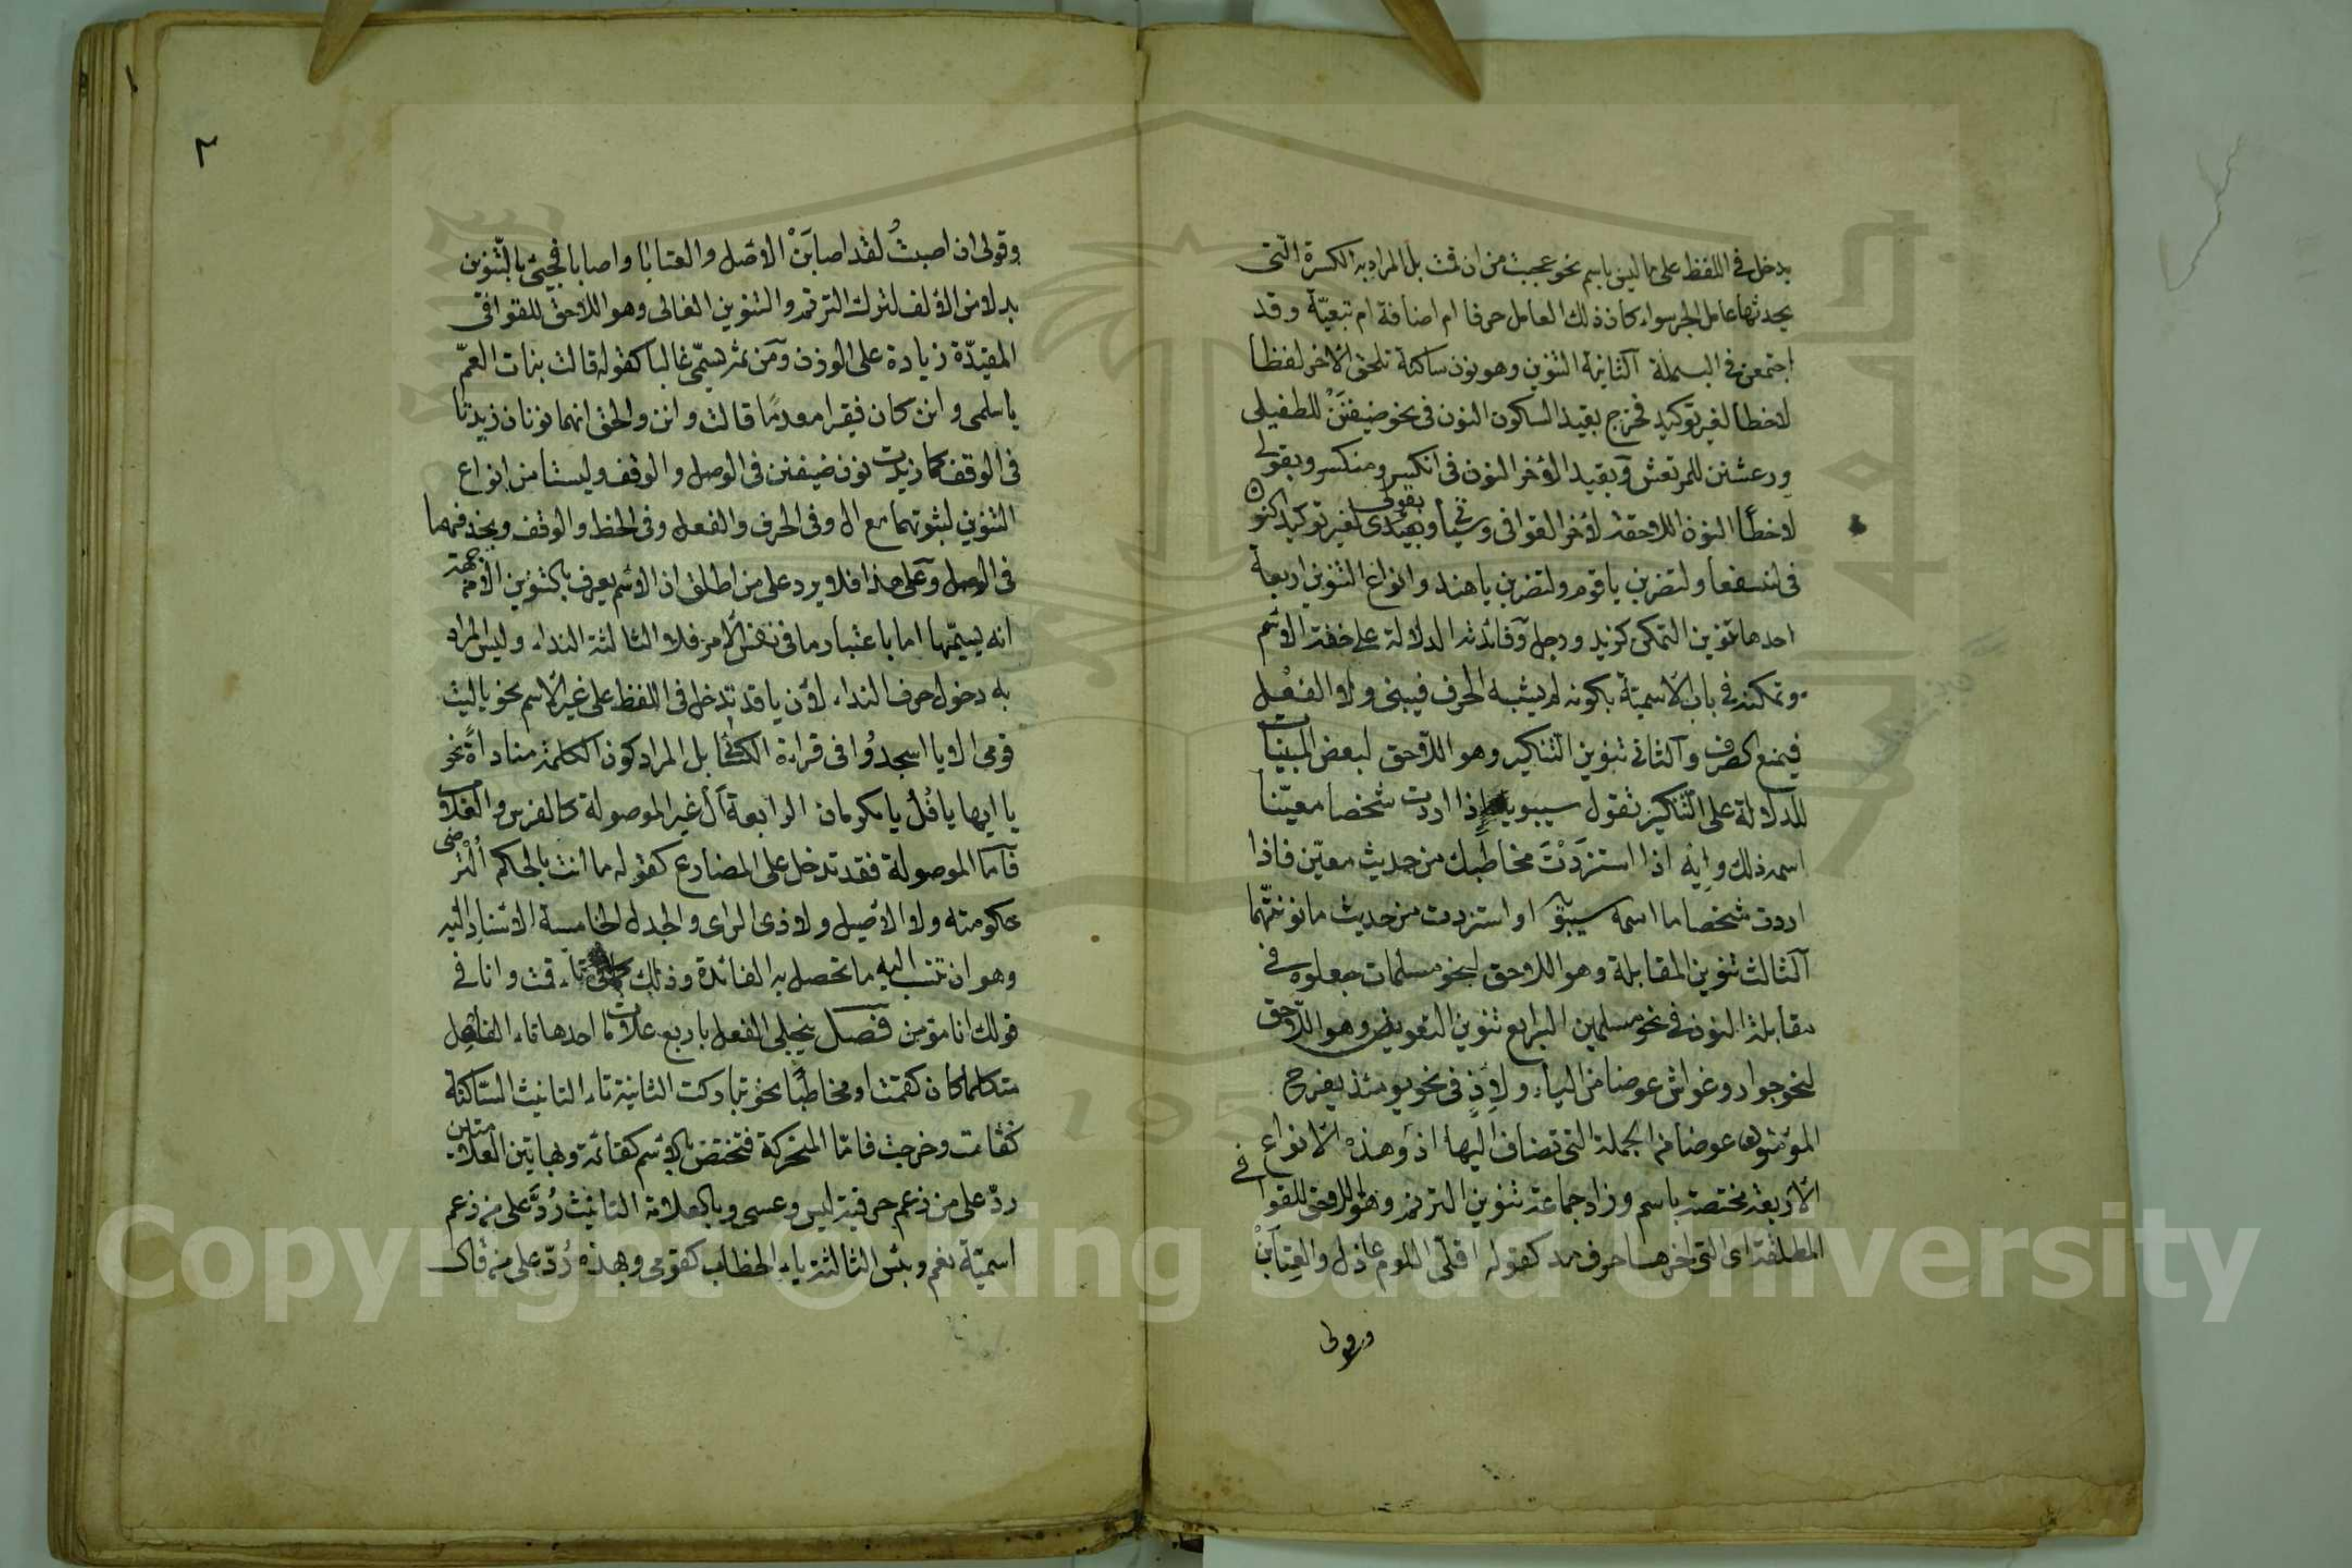 يدخل في اللفظ على ما ليس باسم نحو عجبت من ان قمت بل المراد به الكسرة الّتى
يحدثها عامل الجر سواء كان ذلك العامل حرفا ام اضافة ام تبعيّة وقد
اجتمعن في البسملة الثانية التنوين وهو نون ساكنة تلحق الآخر لفظا
لا خطا لغير توكيد فخرج بقيد السكون النون فى نحو ضيفنٌ للطفيلى
ورعشن للمرتعش وبقيد الآخر النون فى انكسر ومنكسر وبقولى
لا خطّا النون اللاحقة لآخر القوافى وستأتى وبقولى لغير توكيد النون
فى لنسفعا ولتضربن يا قوم ولتضربن يا هند وانواع التنوين اربعة
احدها تنوين التمكن كزيد ورجل وفائدته الدلالة على خفة الاسم
وتمكنه في باب الاسميّة بكونه لم يشبه الحرف فيبنى ولا الفعل
فيمنع الصرف والثانى تنوين التنكير وهو اللاحق لبعض المبنيات
للدلالة على التّنكير تقول سيبويه اذا اردت شخصا معيّنا
اسمه ذلك وايه اذا استزدْتَ مخاطبك من حديث معيّن فاذا
اردت شخصا ما اسمه سيبويه او استزدت من حديث ما نونتهما
الثالث تنوين المقابلة وهو اللاحق لنحو مسلمات جعلوه في
مقابلة النون في نحو مسلمين الرابع تنوين التعويض وهو اللاحق
لنحو جوار وغواش عوضا من الياء ولاِذٍ فى نحو يومئذ يفرح
المؤمنون عوضا من الجملة التى تضاف اليها اذ وهذه الانواع
الاربعة مختصة باسم وزاد جماعة تنوين الترنم وهو اللاحق للقوافي
المطلقة اى التى آخرها حرف مد كقوله اقلّى اللوم عاذل والعتابَنْ
وقولى
٢
وقولى ان اصبتُ لقد اصابَنْ الاصل والعتابا واصابا فجيئ بالتّنوين
بدلا من الالف لترك الترنم والتنوين الغالى وهو اللاحق للقوافى
المقيدّة زيادة على الوزن ومن ثم سمّى غاليا كقوله قالت بنات العمّ
يا سلمى وانن كان فقيرا معدمًا قالت وانن والحق انهما نونان زيدتا
فى الوقف كما زيدت نون ضيفنن فى الوصل والوقف وليستا من انواع
التنوين لثبوتهما مع ال وفى الحرف والفعل وفى الخط والوقف وبحذفهما
فى الوصل وعلى هذا فلا يرد على من اطلق ان الاسم يعرف بالتنوين الا من جهة
انه يسميّها اما باعتبار ما فى نفس الامر فلا الثالثة النداء وليس المراد
به دخول حرف النداء لان يا قد تدخل فى اللفظ على غير الاسم نحو يا ليت
قومى الا يا اسجدُوا فى قراءة الكسائى بل المراد كون الكلمة مناداة نحو
يا ايها يا فُلُ يا مكرمان الرابعة أل غير الموصولة كالفرس والغلام
فاما الموصولة فقد تدخل على المضارع كقوله ما انت بالحكم التُرضى
حكومته ولا الاصيل ولا ذى الراى والجدل الخامسة الاسناد اليه
وهو ان تنسب اليه ما تحصل به الفائدة وذلك كما فى تاء قمت وانا في
قولك انا مؤمن فصل ينجلى الفعل باربع علامات احدها تاء الفاعل
متكلما كان كقمت او مخاطبًا نحو تباركت الثانية تاء التانيث السّاكنة
كقامت وخرجت فامّا المتحركة فتختص بالاسم كقائمة وبهاتين العلامتين
ردّ على من زعم حرفية ليس وعسى وبالعلامة التانيث رُدَّ على من زعم
اسميّة نعم وبئس الثالثة ياء الخطاب كقومى وبهذه رُدّ على من قال
Copyright © King Saud University
195